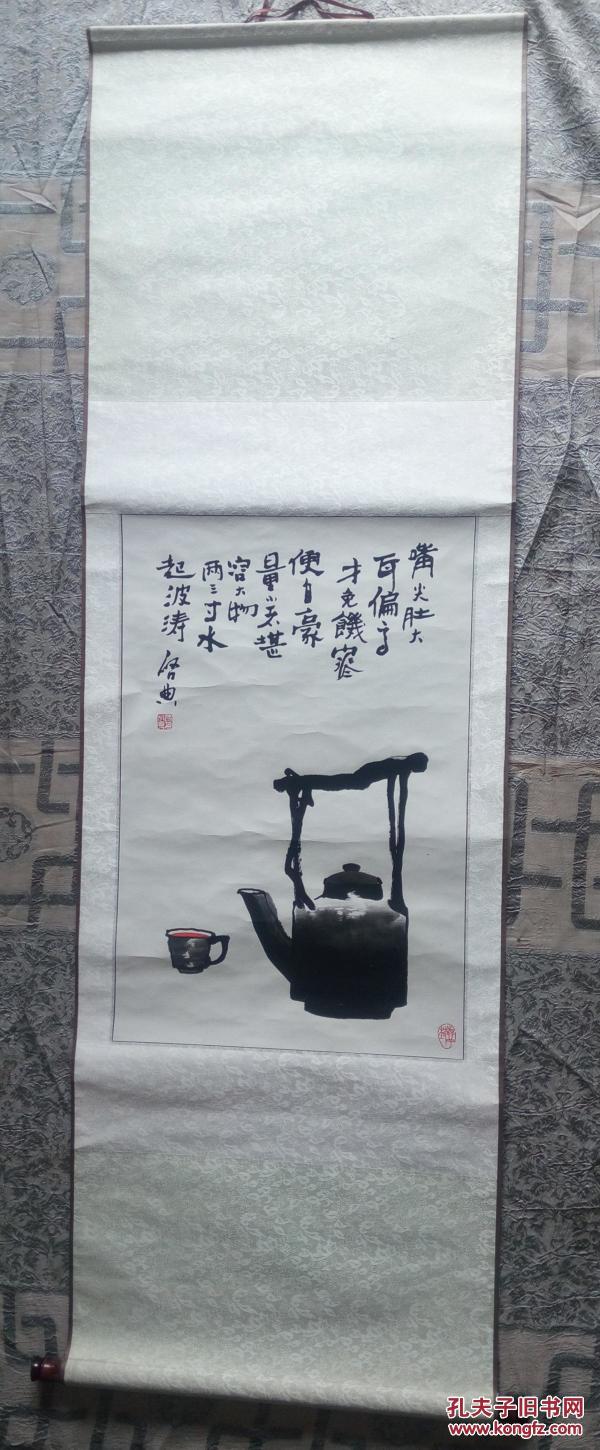 嘴尖肚大
耳偏高
才免饑寒
便自豪
量小不堪
容大物
两三寸水
起波涛 启典
孔夫子旧书网
www.kongfz.com